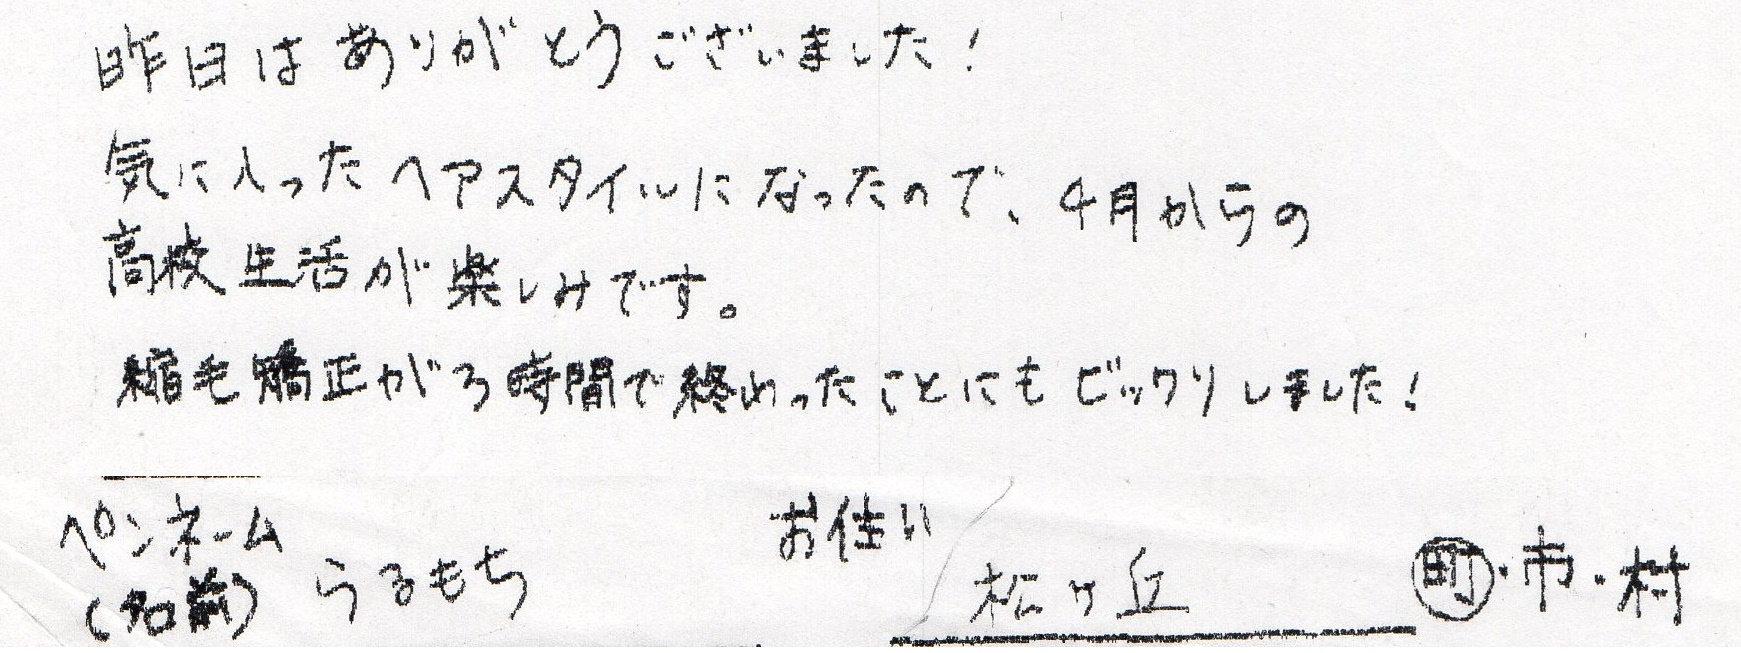 昨日はありがとうございました！
気に入ったヘアスタイルになったので、4月からの
高校生活が楽しみです。
縮毛矯正が3時間で終わったことにもビックリしました！
ペンネーム
(名前) らるもち
お住い 松ヶ丘 町・市・村